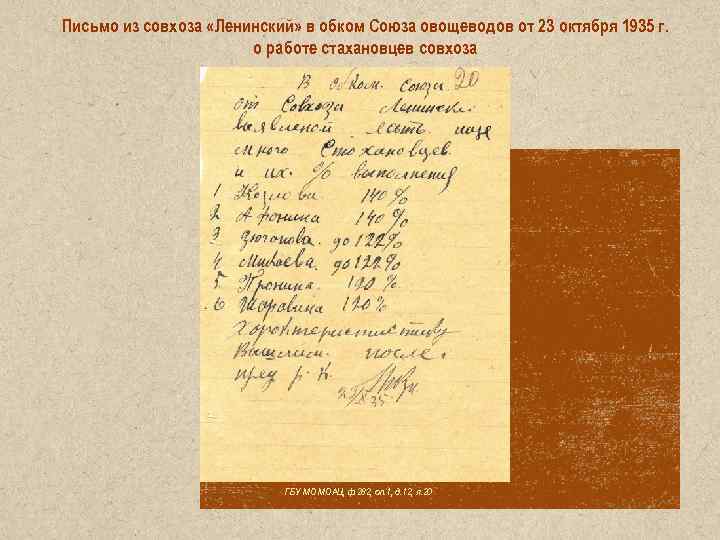 Письмо из совхоза «Ленинский» в обком Союза овощеводов от 23 октября 1935 г.
о работе стахановцев совхоза
В обком. союза 20
от Совхоза Ленински.
выявленой есть
много Стохановцев
и их. % выполнения
1 Козлова 140%
2 Афонина 140%
3 до 122%
4 до 122%
5 Пронина. 120%
6 120%
Характеристистику
Вышлим. после.
пред р. К.
ГБУ МО МОАЦ, ф.282, оп.1, д.12, л.20